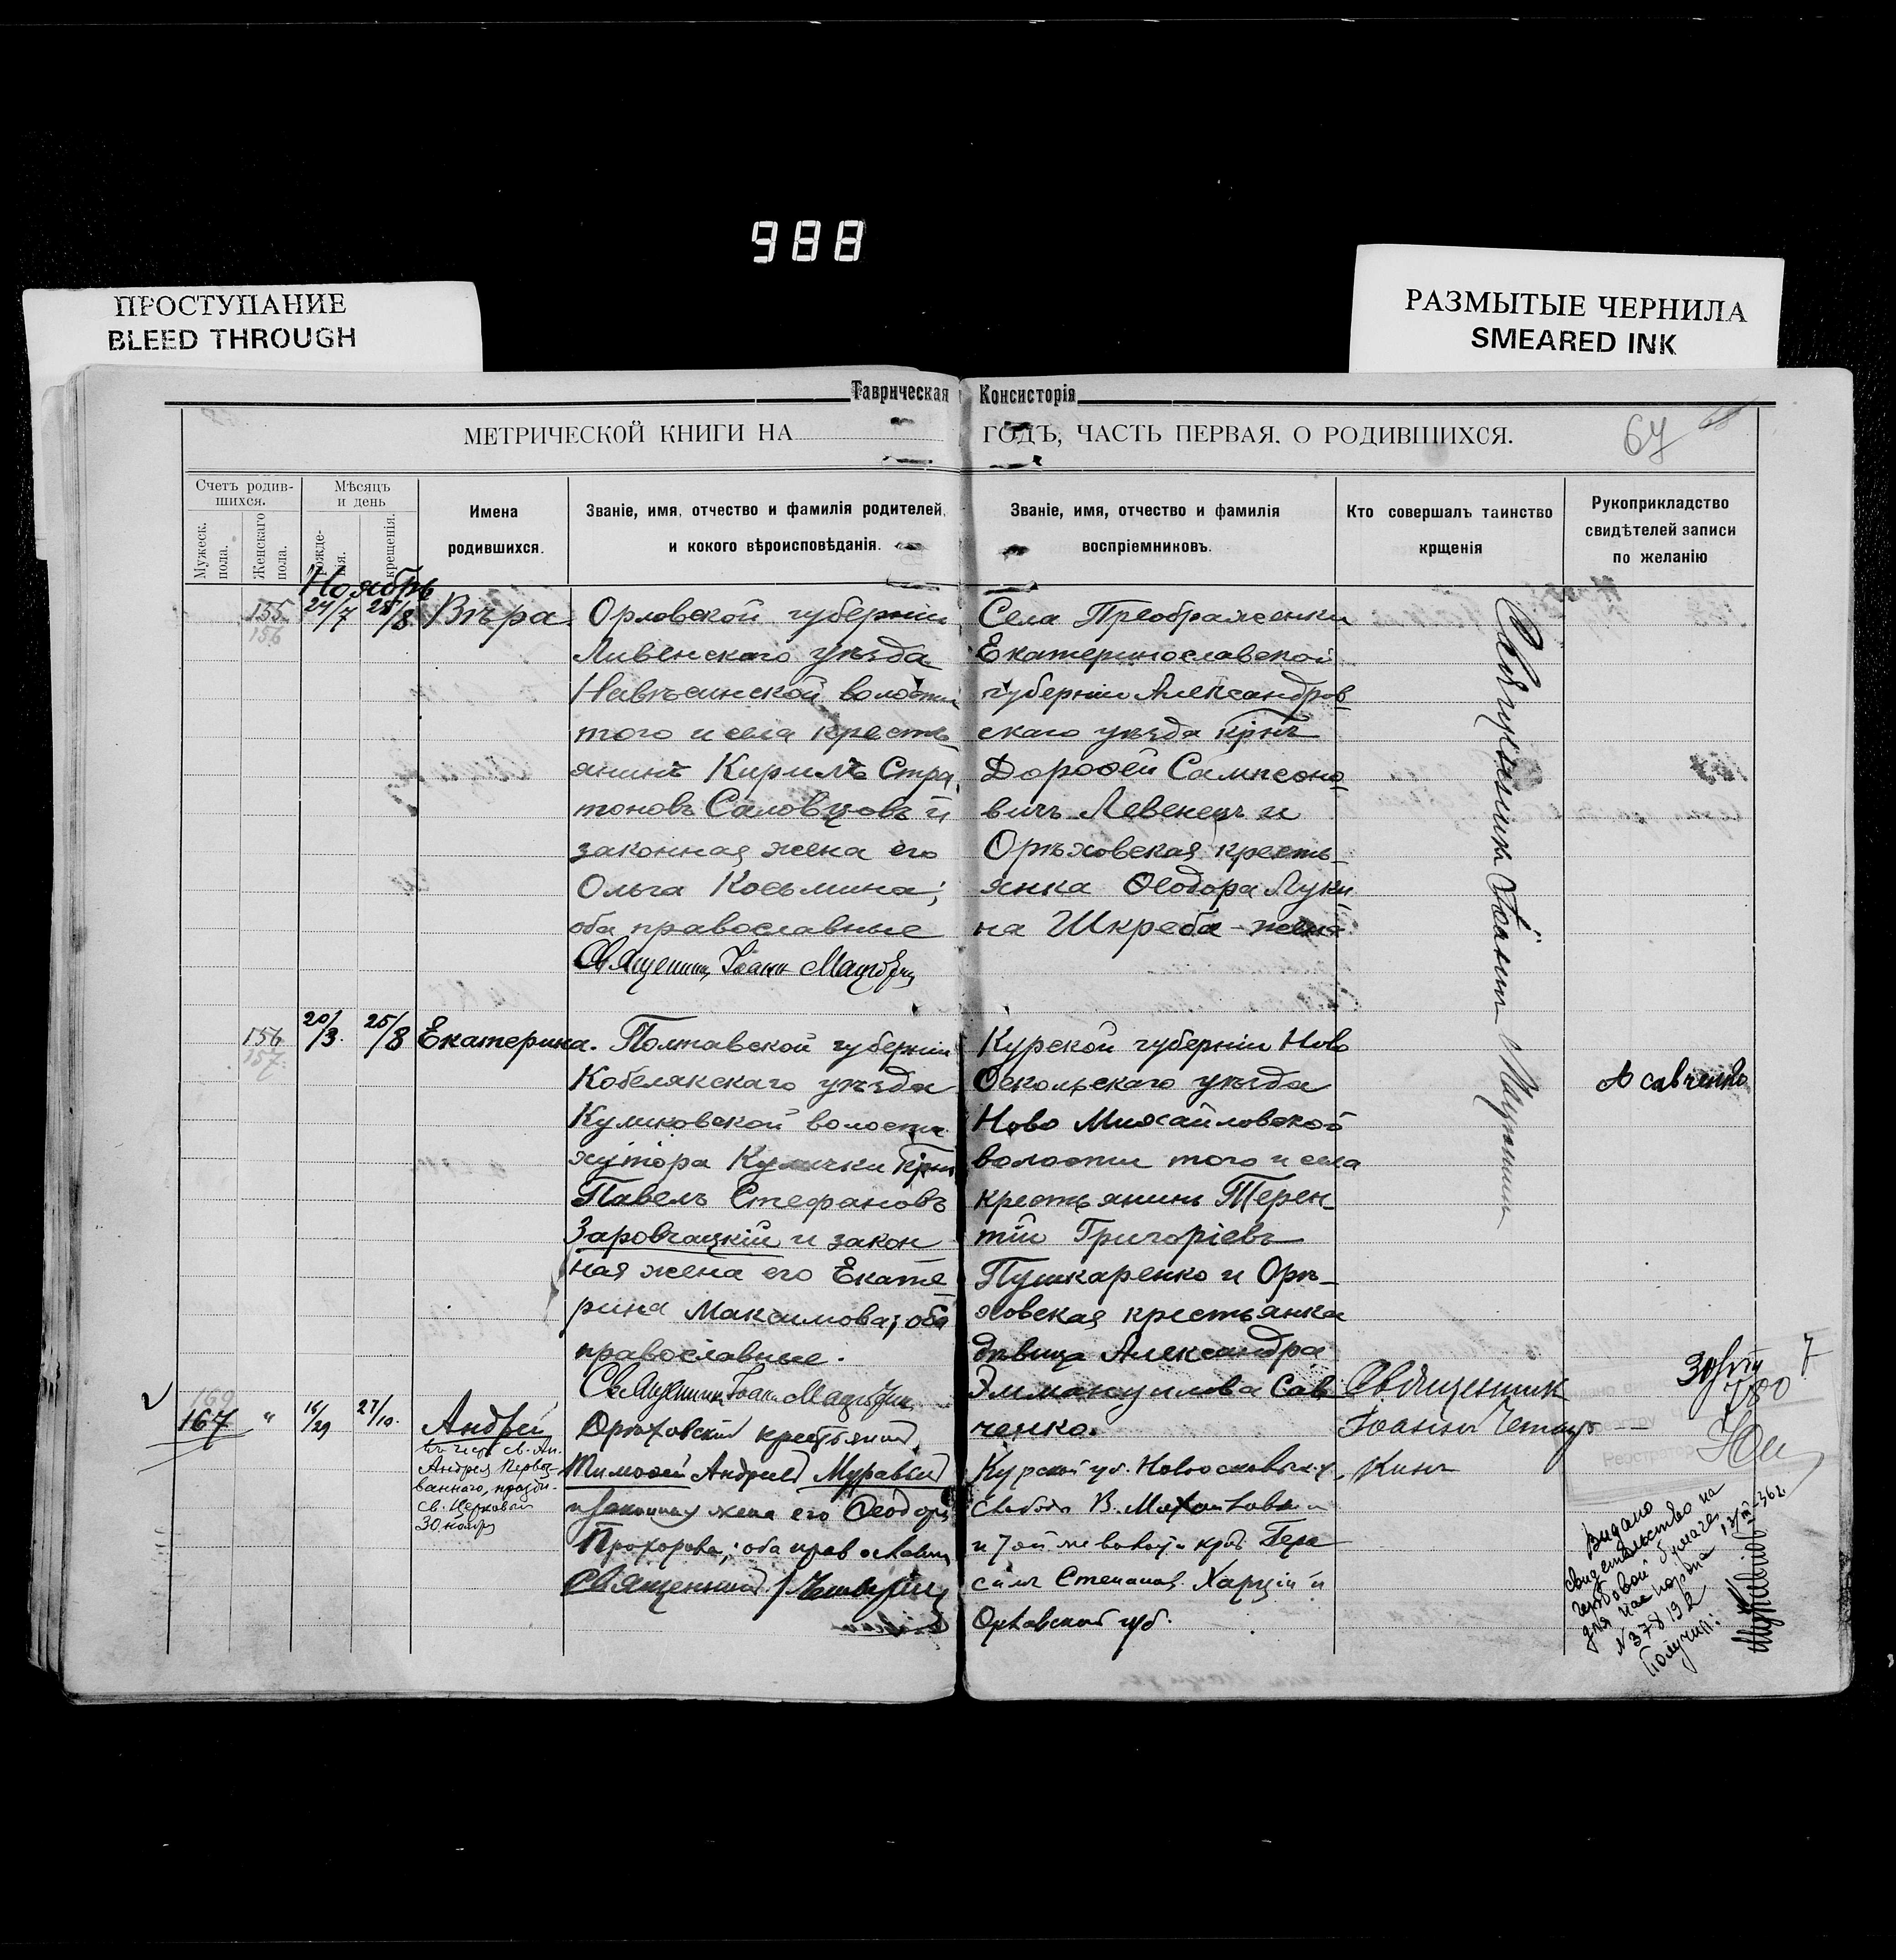 988
ПРОСТУПАНИЕ
BLEED THROUGH
РАЗМЫТЫЕ ЧЕРНИЛА
SMEARED INK
Таврическая Консисторія
МЕТРИЧЕСКОЙ КНИГИ НА ГОДЪ, ЧАСТЬ ПЕРВАЯ. О РОДИВШИХСЯ.
67
Счетъ родив-
шихся.
Мужеск.
пола.
Женскаго
пола.
Мѣсяцъ
и день
рожде-
нія.
крещенія.
Имена
родившихся.
Званіе, имя, отчество и фамилія родителей,
и кокого вѣроисповѣданія.
Званіе, имя, отчество и фамилія
воспріемниковъ.
Кто совершалъ таинство
крщенія
Рукоприкладство
свидѣтелей записи
по желанію
Ноябрь
155
156
24/7 25/8 Вѣра.
Орловской губерніи
Ливенскаго уѣзда
Навѣсинской волости
того и села кресть-
янинъ Кирилъ Стра-
тоновъ Саловцовъ и
законная жена его
Ольга Косьмина;
оба православные
Священникъ Іоаннъ
Села Преображенки
Екатеринославской
губерніи Александров-
скаго уѣзда крнъ
Дорофей Сампсоно-
вичъ Левенецъ и
Орѣховская кресть-
янка Ѳеодора Луки-
на Шкреба
Священникъ Іоаннъ
156
157
20/3. 25/8 Екатерина.
Полтавской губерніи
Кобелякскаго уѣзда
Куликовской волости
хутора Кулички крнъ
Павелъ Стефановъ
Заровчацкій и закон
ная жена его Екате
рина Максимова; оба
православные.
Священникъ Іоаннъ
Курской губерніи Ново
Оскольскаго уѣзда
Ново Михайловской
волости того и села
крестьянинъ Терен-
тій Григоріевъ
Пушкаренко и Орѣ-
ховская крестьянка
дѣвица Александра
Эммануилова Сав
ченко.
А Савченко
167 " 16/29 27/10. Андрей
въ честь св. ап.
Андрея Перво-
званнаго, праздн.
св. Церковью
30 ноября
Орѣховскій крестьянинъ
Тимофей Андреевъ Муравьевъ
и законная жена его Ѳеодора
Прохорова; оба православны
Священникъ
Курской губ. Новооскольск. у.
слободы В. Михайловки
и той же волости крест. Гера
симъ Степановъ Харцій и
Орловской губ.
Священникъ
Іоаннъ
30/VIII
7
Выдано
свидетельство на
гербовой бумаге
для паспорта
N 378192
Получил: